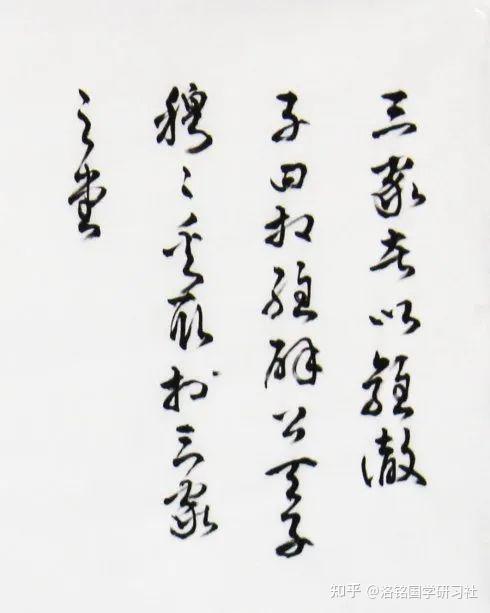 三家者以雍徹
子曰相維辟公天子
穆々奚取於三家
之堂
知乎 @洛铭国学研习社